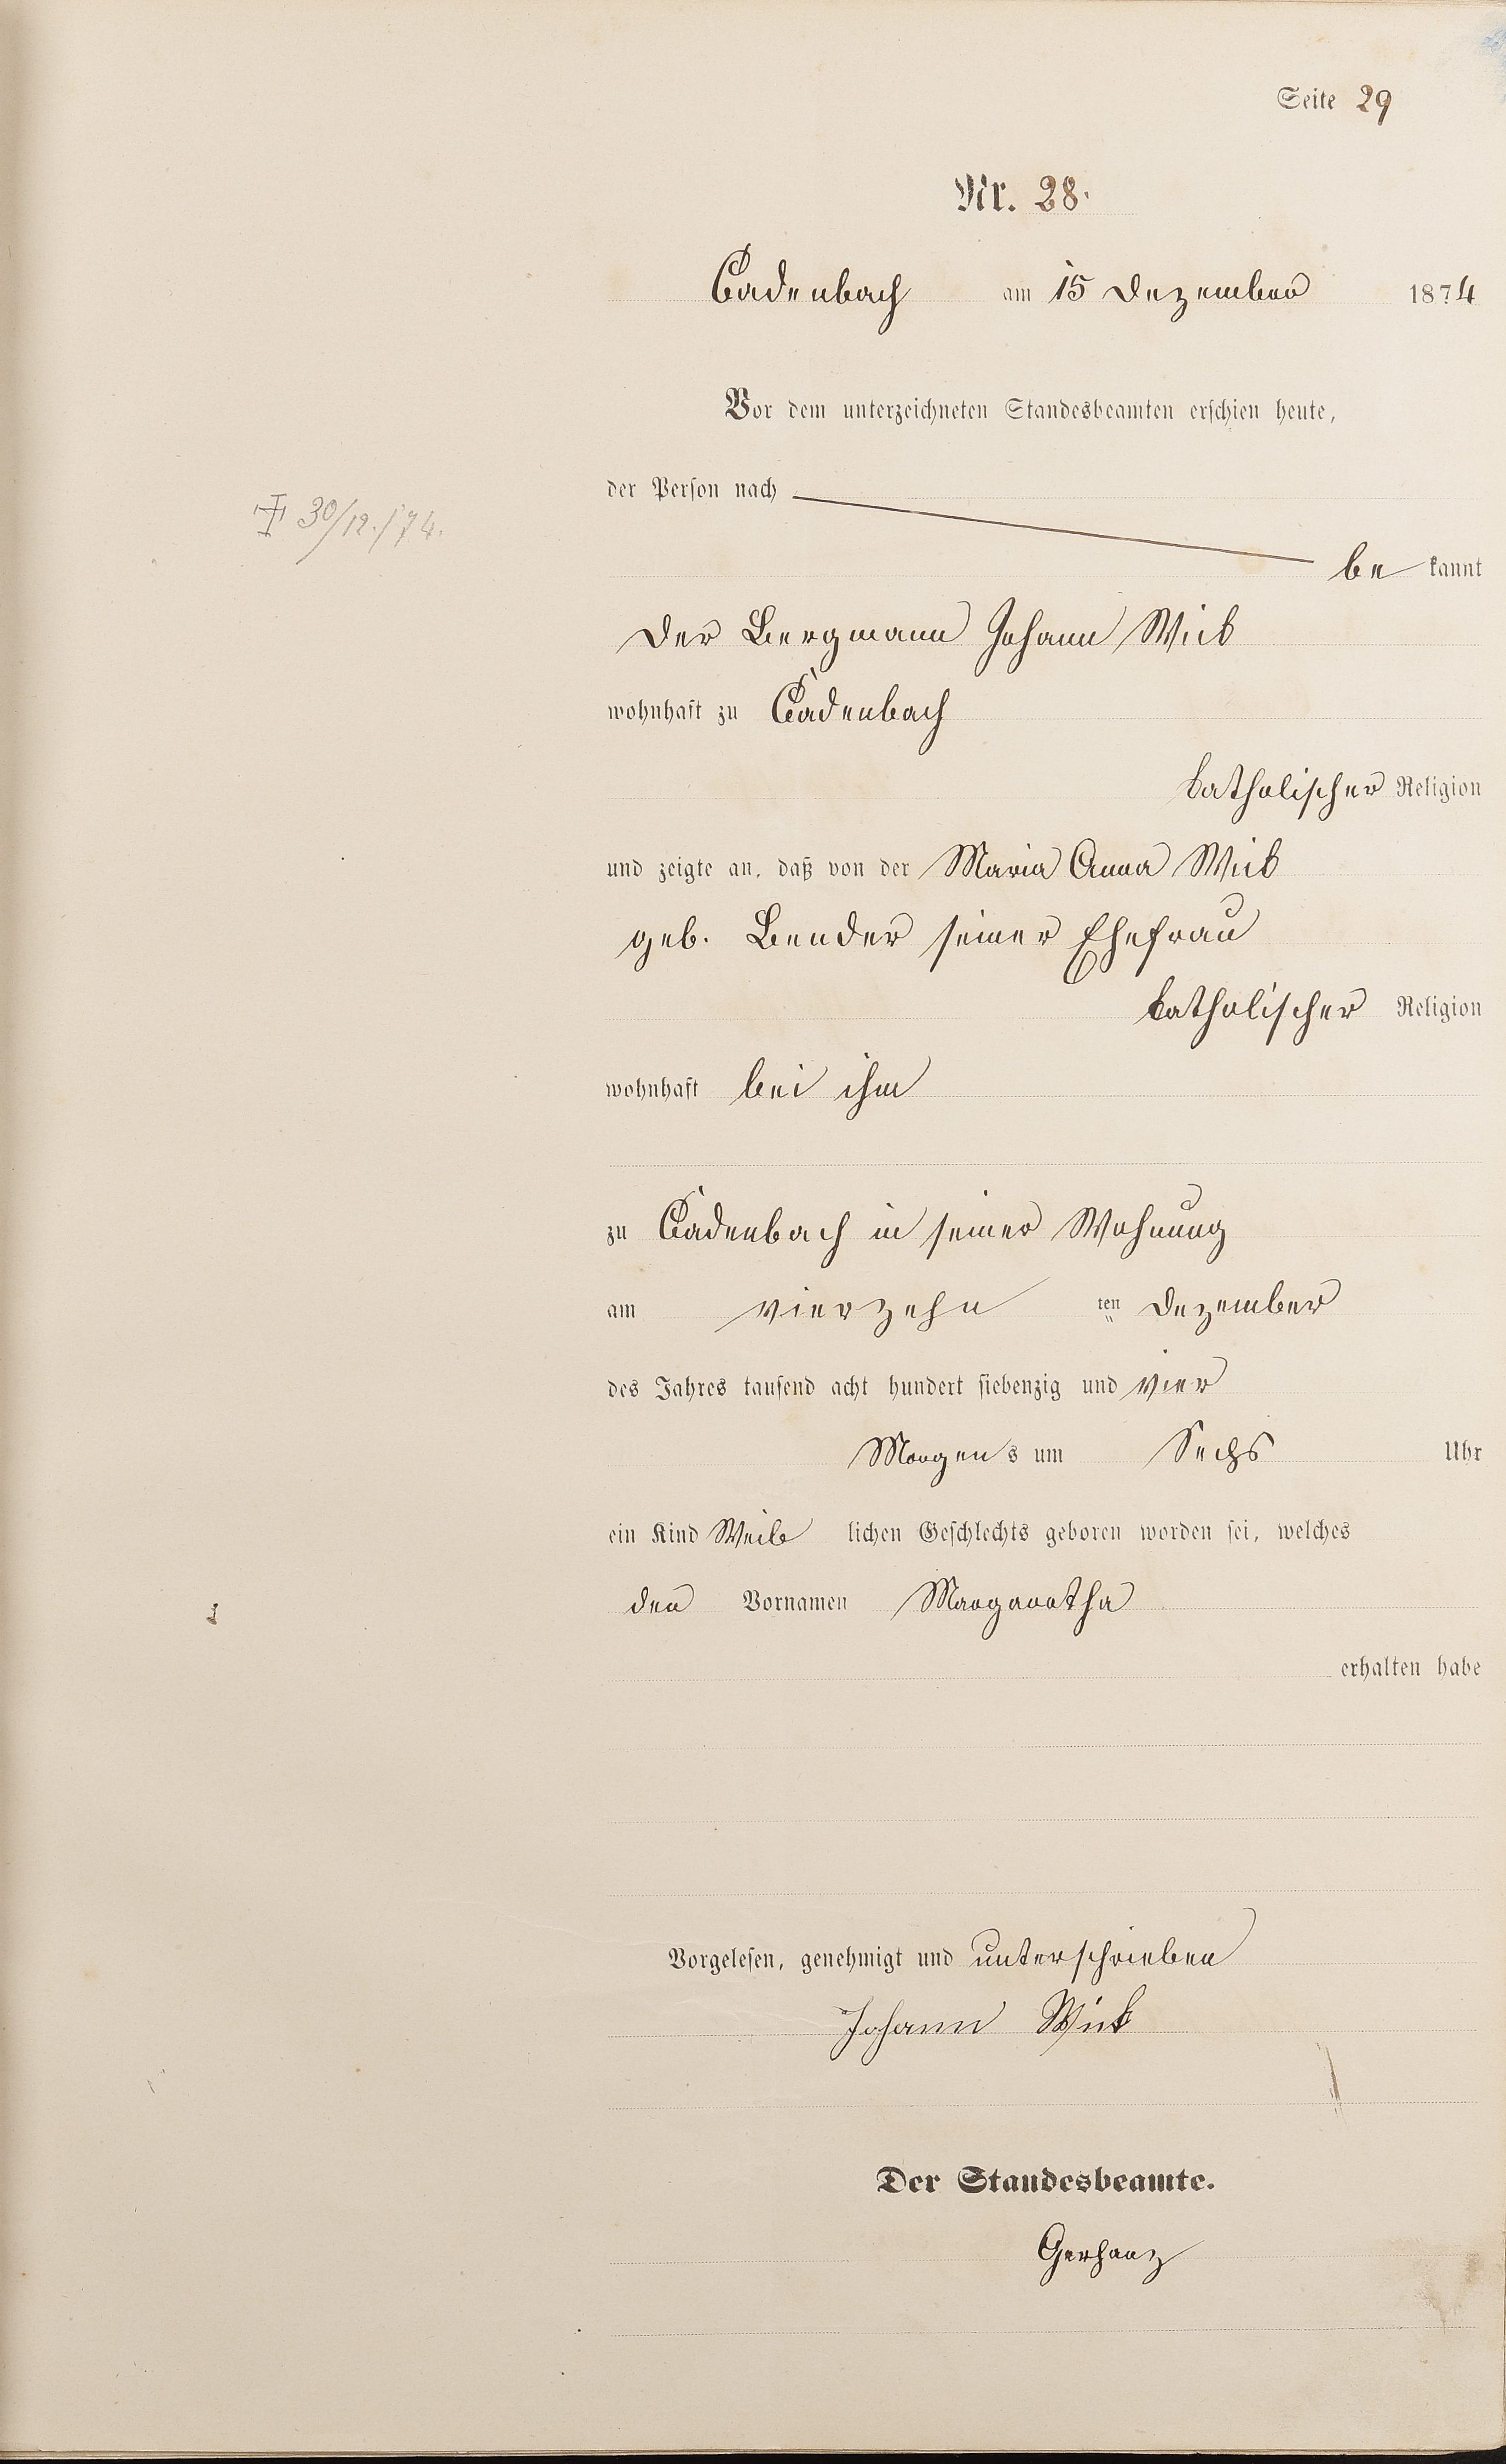 Seite 29
Nr. 28.
Cadenbach am 15 Dezember 1874
Vor dem unterzeichneten Standesbeamten erschien heute,
der Person nach
be kannt
‡ 30/12./74.
der Bergmann Johann Wick
wohnhaft zu Cadenbach
katholischer Religion
und zeigte an, daß von der Maria Anna Wick
geb. Bender seiner Ehefrau
katholischer Religion
wohnhaft bei ihm
zu Cadenbach in seiner Wohnung
am vierzehn ten Dezember
des Jahres tausend acht hundert siebenzig und vier
Morgens um Sechs Uhr
ein Kind Weib lichen Geschlechts geboren worden sei, welches
den Vornamen Margaretha
erhalten habe
Vorgelesen, genehmigt und unterschrieben
Johann Wick
Der Standesbeamte.
Gerharz